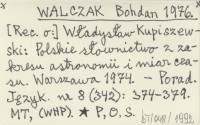 WALCZAK Bohdan 1976.
[Rec. o:] Władysław Kupiszew-
ski: Polskie słownictwo z za-
kresu astronomii i miar cza-
su. Warszawa 1974. - Porad.
Język. nr 8 (342): 374-379.
MT, (WHP). * P, O, S.